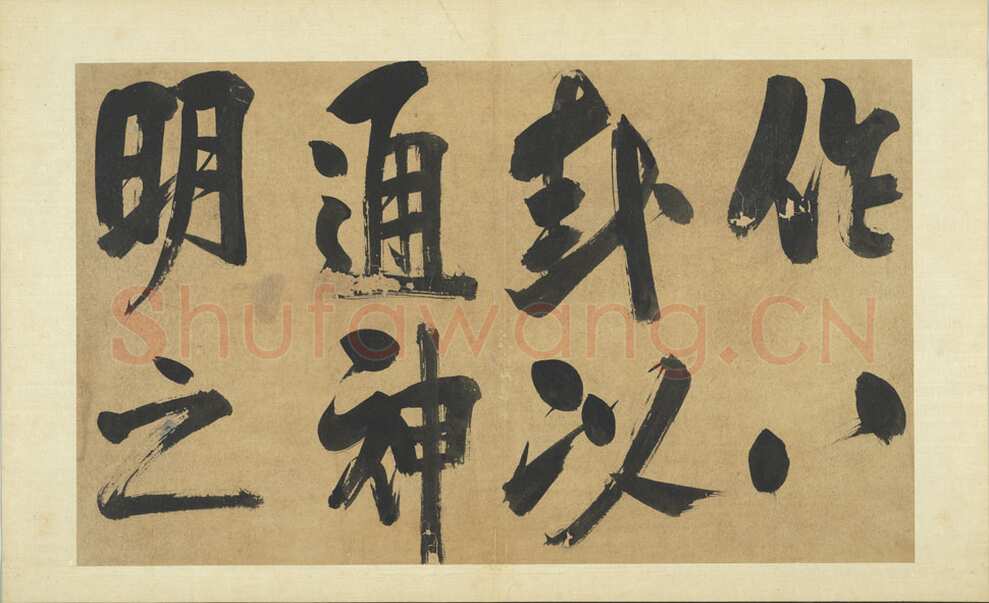 作八
卦以
通神
明之
Shufawang.CN